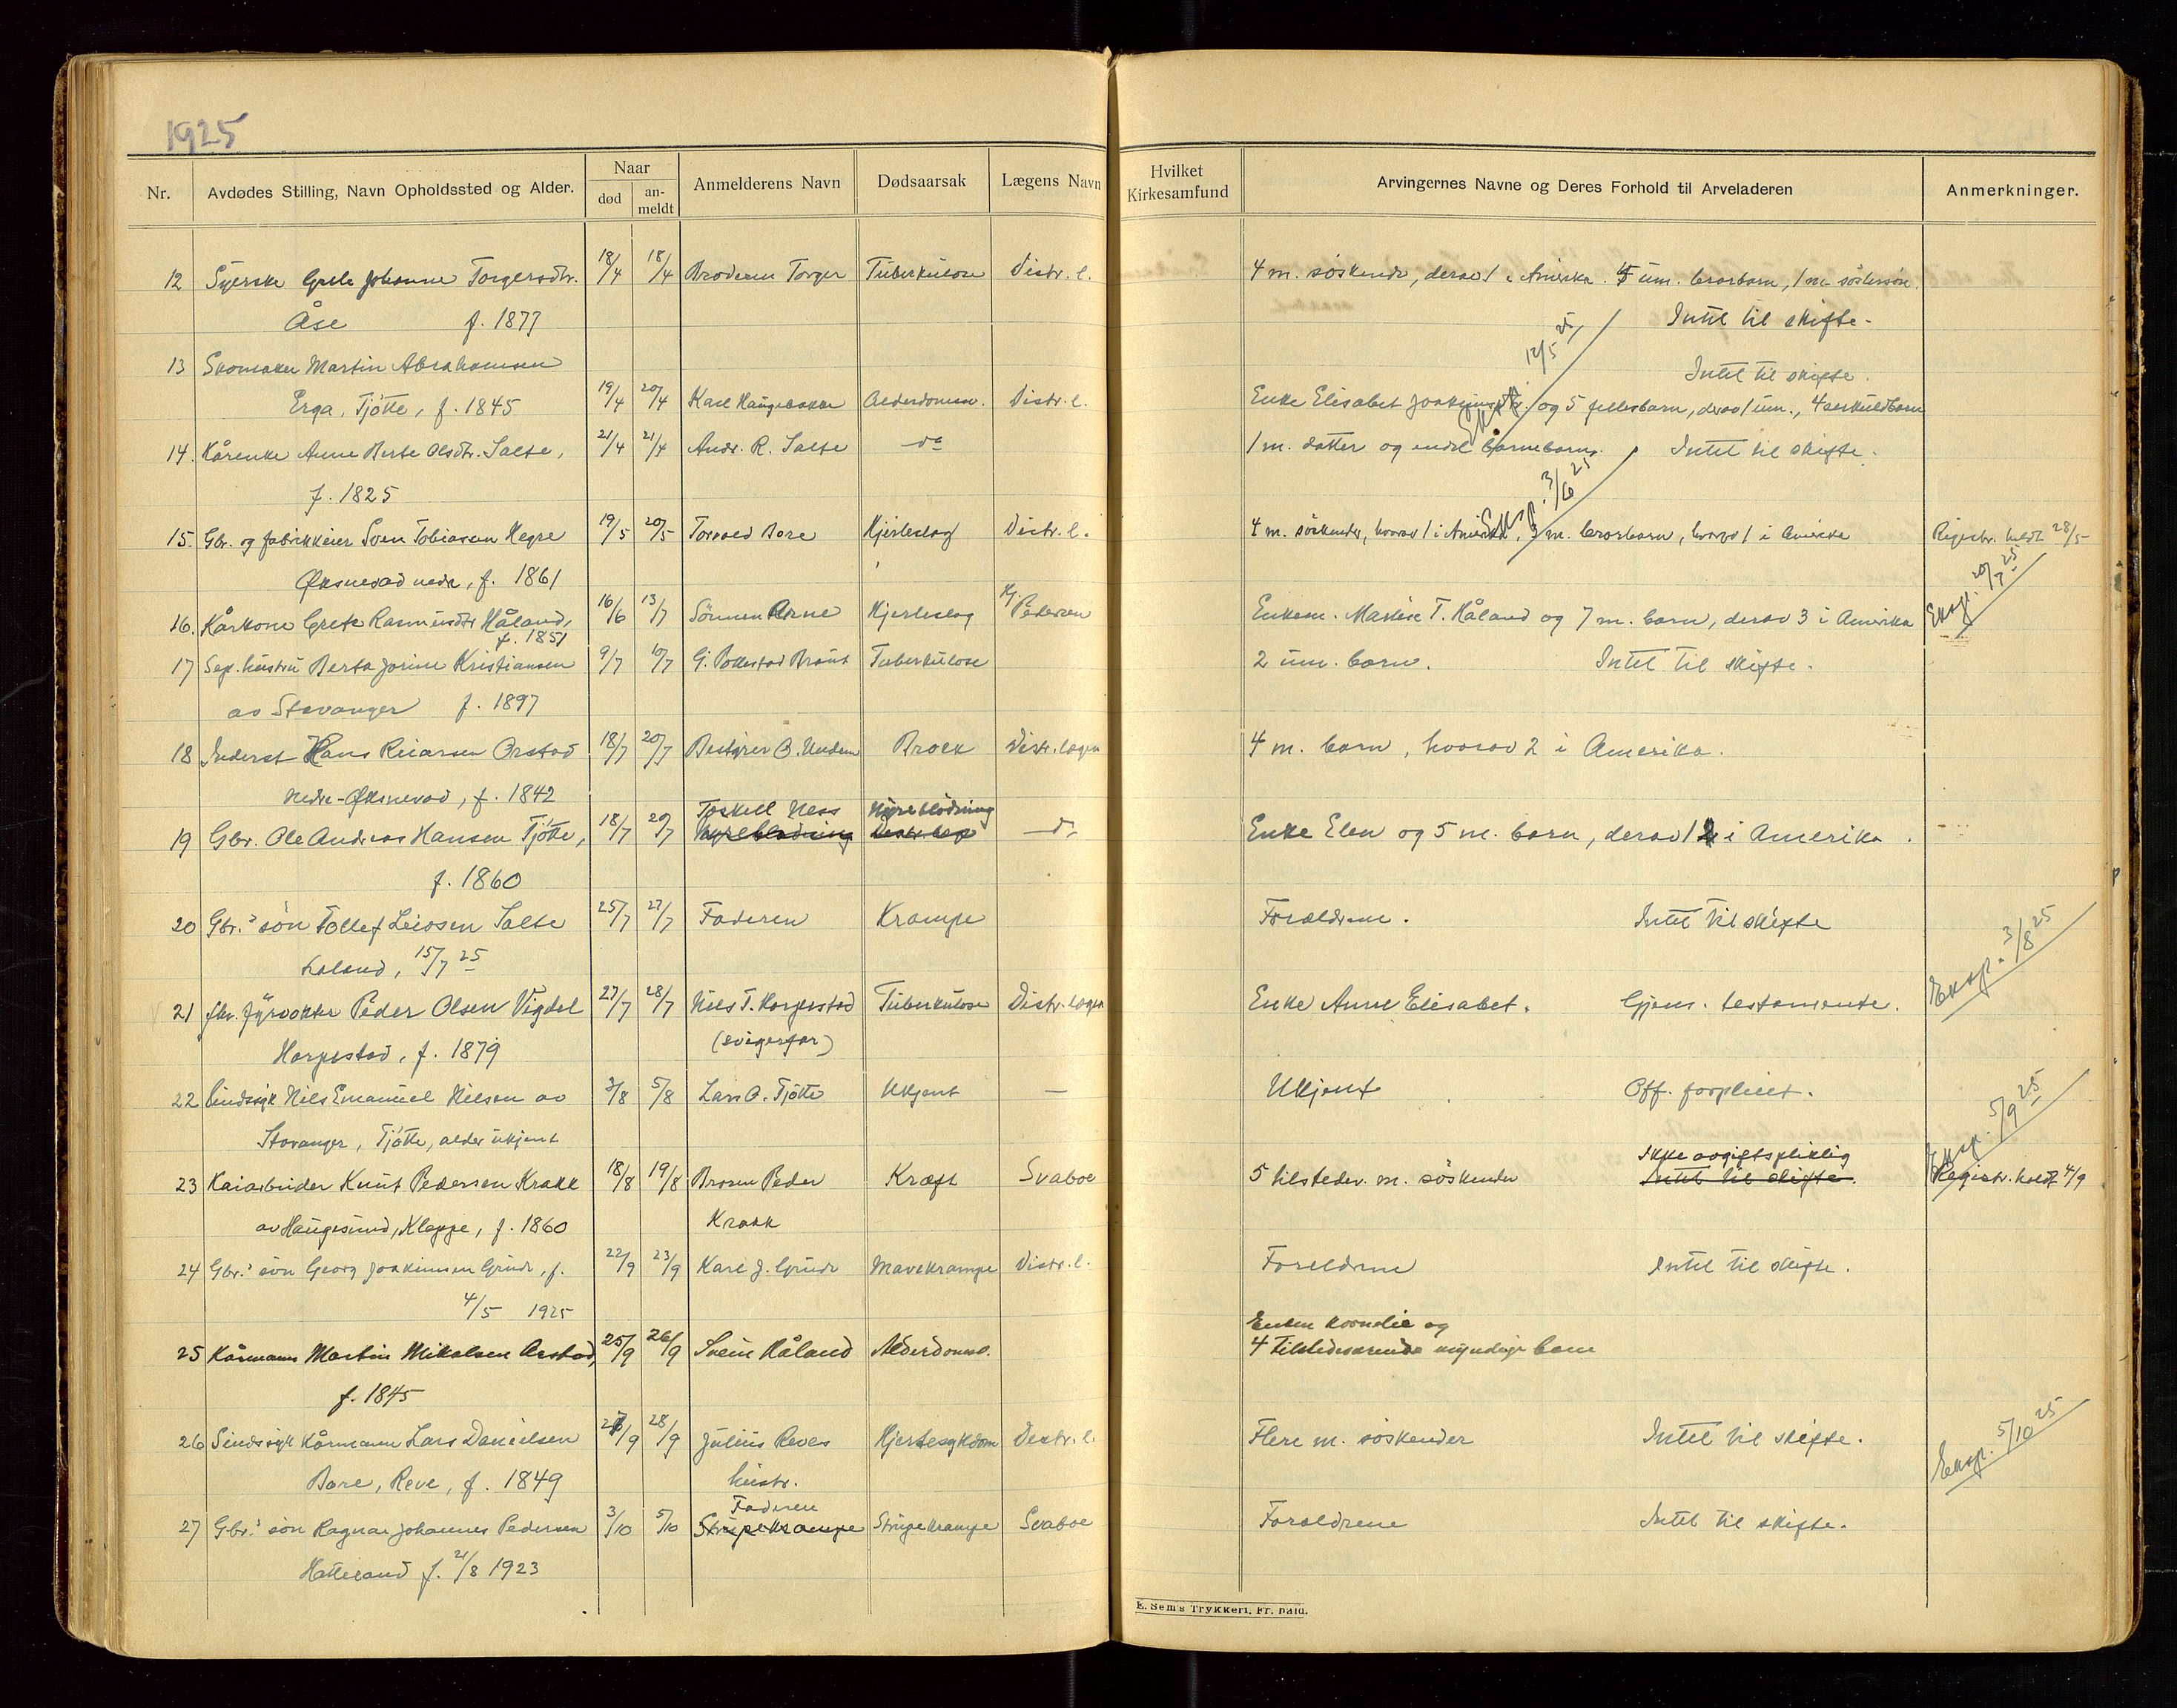 1925
Nr. Avdødes Stilling, Navn Opholdssted og Alder. Naar død an-meldt Anmelderens Navn Dødsaarsak Lægens Navn Hvilket Kirkesamfund Arvingernes Navne og Deres Forhold til Arveladeren Anmerkninger.
12 Syerske Grete Johanne Torgersdtr. 18/4 18/4 Broderen Torger Tuberkulose Distr. l. 4 m. søskende, derav 1 i Amerika. 5 um. brorbarn, 1 m. søstersøn.
Åse f. 1877 Intet til skifte.
Eksp. 12/5 25
13 Skomaker Martin Abrahamsen Intet til skifte.
Erga, Tjøtte, f. 1845 19/4 20/4 Karl Haugebakke Alderdomssv. Distr. l. Enke Elisabet Joakimsdtr. og 5 fellesbarn, derav 1 um., 4 særkuldbarn
14. Kårenke Anne Berte Olsdtr. Salte, 21/4 21/4 Andr. R. Salte do 1 m. datter og endel barnebarn. Intet til skifte.
f. 1825
Eksp. 3/6 25
15. Gbr. og fabrikkeier Sven Tobiasen Hegre 19/5 20/5 Torvald Bore Hjerteslag Distr. l. 4 m. søskende, hvorav 1 i Amerika, 3 m. brorbarn, hvorav 1 i Amerika Registr. holdt 28/5
Øksnevad nedre, f. 1861
16. Kårkone Grete Rasmusdtr Håland, 16/6 13/7 Sønnen Arne Hjerteslag Kj. Pedersen Enkem. Mathias T. Håland og 7 m. barn, derav 3 i Amerika Eksp. 20/7 25
f. 1851
17 Sep. hustru Berta Jorine Kristiansen 9/7 10/7 G. Pollestad Braut Tuberkulose 2 um. barn. Intet til skifte.
av Stavanger f. 1897
18 Inderst Hans Reiarsen Orstad 18/7 20/7 Bestyrer O. Undem Brokk Distr. lægen 4 m. barn, hvorav 2 i Amerika.
Nedre-Øksnevad, f. 1842
Torkell Næss Nyreblødning
19 Gbr. Ole Andreas Hansen Tjøtte, 18/7 20/7 Nyreblødning do Enke Elen og 5 m. barn, derav 2 i Amerika.
f. 1860
20 Gbr.s søn Tollef Leivsen Salte 25/7 27/7 Faderen Krampe Forældrene. Intet til skifte
Laland, 15/7 25
Eksp. 3/8 25
21 fhv. fyrvokter Peder Olsen Vigdel 27/7 28/7 Nils T. Horpestad Tuberkulose Distr. lægen Enke Anne Elisabet. Gjens. testamente.
Horpestad, f. 1879 (svigerfar)
22 Sindssyk Nils Emanuel Nilsen av 3/8 5/8 Lars O. Tjøtte Ukjent — Ukjent Off. forpleiet.
Stavanger, Tjøtte, alder ukjent
Eksp. 5/9 25
Ikke avgiftspliktig
23 Kaiarbeider Knut Pedersen Krakk 18/8 19/8 Broren Peder Kræft Svaboe 5 tilstedev. m. søskende Intet til skifte. Registr. holdt 4/9
av Haugesund, Kleppe, f. 1860 Krakk
24 Gbr.s søn Georg Joakimsen Grude, f. 22/9 23/9 Karl J. Grude Mavekrampe Distr. l. Foreldrene Intet til skifte.
4/5 1925
Enken Kornelie og
25 Kårmann Martin Mikalsen Orstad, 25/9 26/9 Svein Håland Alderdomssv. 4 tilstedeværende myndige barn
f. 1845
26 Sindssyk Kårmann Lars Danielsen 27/9 28/9 Julius Reves Hjertesykdom Distr. l. Flere m. søskender Intet til skifte.
Bore, Reve, f. 1849 hustr.
Eksp. 5/10 25
Faderen
27 Gbr.s søn Ragnar Johannes Pedersen 3/10 5/10 Strupekrampe Strupekrampe Svaboe Forældrene Intet til skifte.
Hatteland f. 21/8 1923
E. Sem's Trykkeri, Fr. hald.